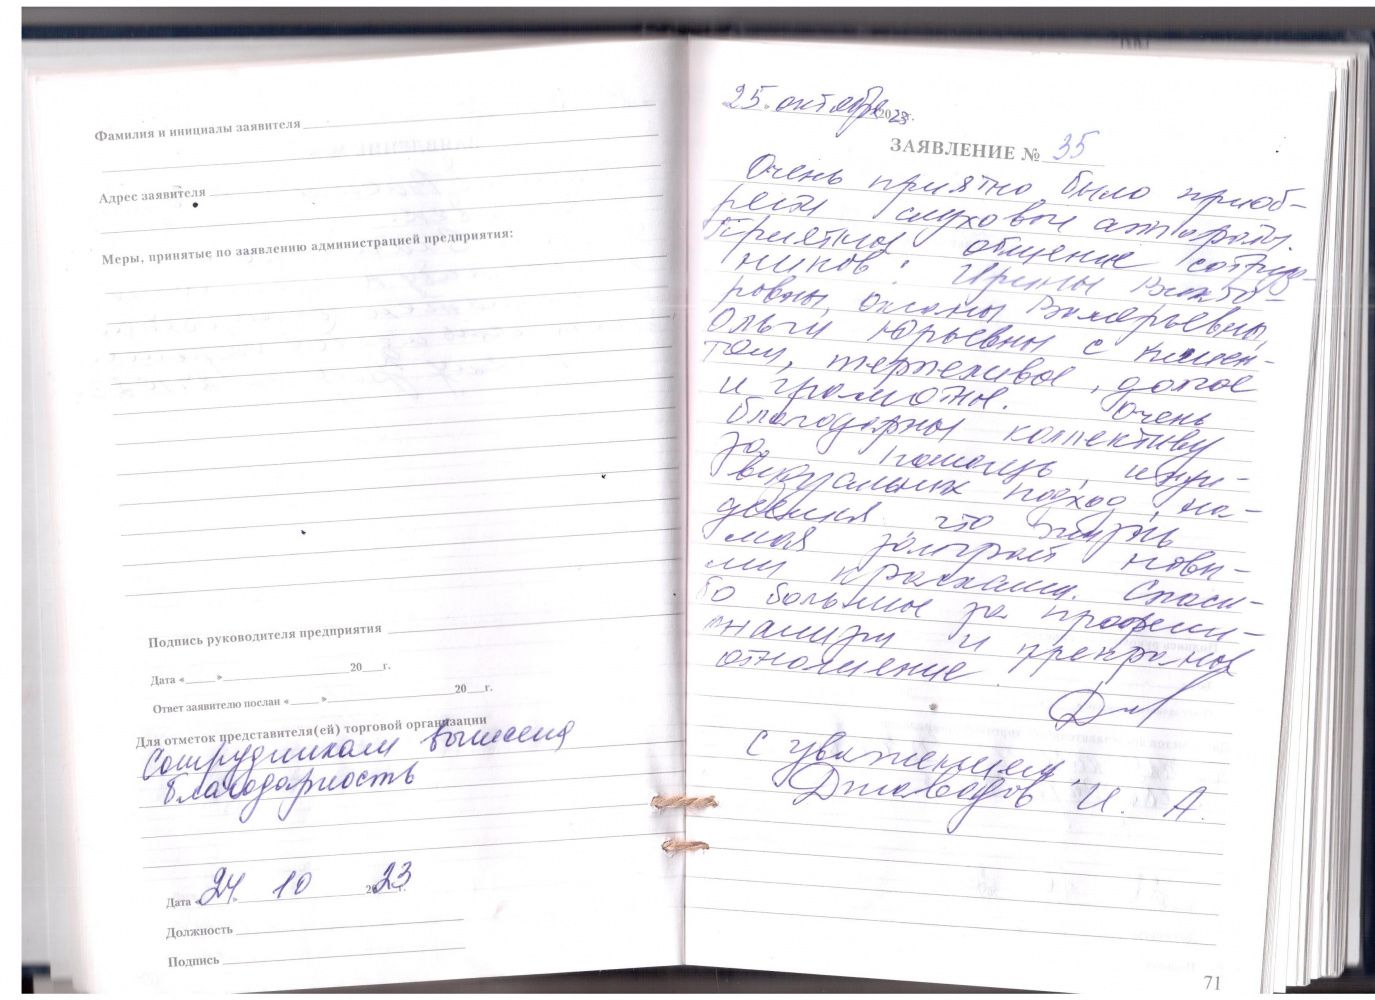 Фамилия и инициалы заявителя
Адрес заявителя
Меры, принятые по заявлению администрацией предприятия:
Подпись руководителя предприятия
Дата « » 20 г.
Ответ заявителю послан « » 20 г.
Для отметок представителя(ей) торговой организации
Сотрудникам вынесена
благодарность
Дата «24» 10 2023 г.
Должность
Подпись
«25» октября 2023 г.
ЗАЯВЛЕНИЕ № 35
Очень приятно было приоб-
рести слуховые аппараты.
Приятное общение сотруд-
ников: Ирины Викто-
ровны, Оксаны Валерьевны,
Ольги Юрьевны с клиен-
том, терпеливое, долгое
и грамотное. Очень
благодарны коллективу
за помощь, инди-
видуальных подход, на-
деемся что жизнь
моя заиграет новы-
ми красками. Спаси-
бо большое за професси-
нализм и прекрасное
отношение.
С уважением
Джавадов И. А.
71